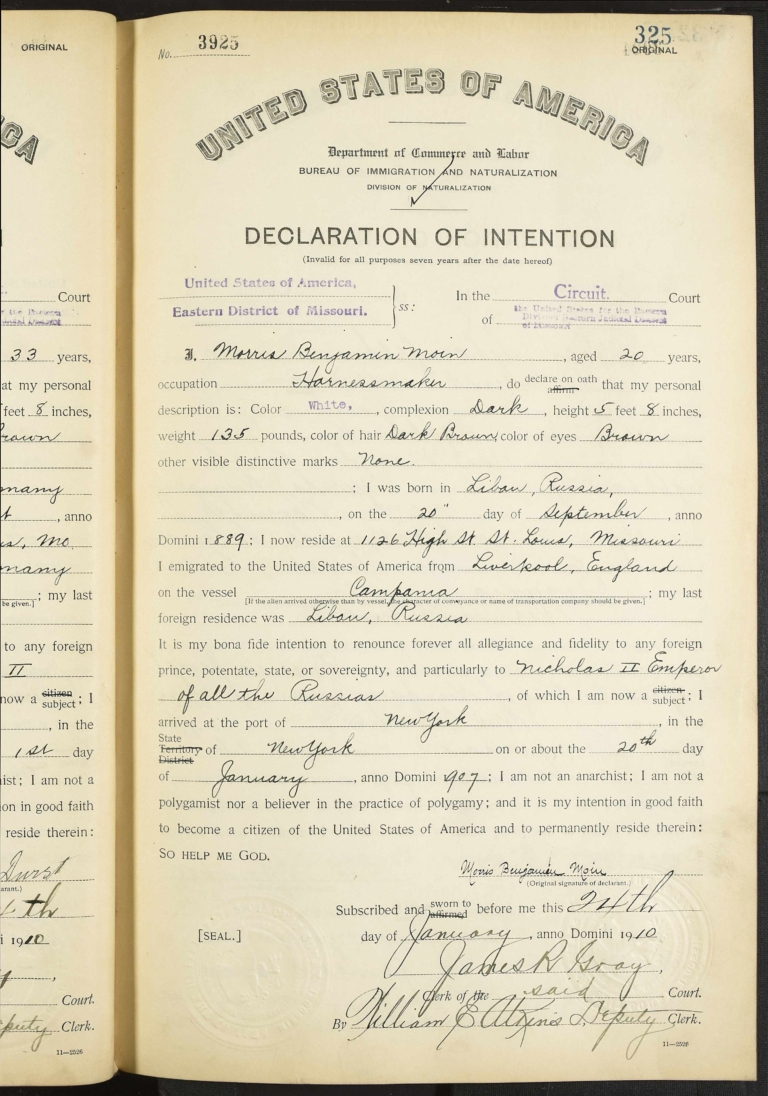 ORIGINAL
CA
Court
33 years,
at my personal
feet 8 inches,
rown
many
anno
s, Mo.
many
be given.] ; my last
to any foreign
II
now a citizen subject ; I
, in the
1st day
ist; I am not a
on in good faith
reside therein:
Durst
arant.)
4th
i 1910
Court.
Deputy Clerk.
11—2526
No. 3925
325
ORIGINAL
UNITED STATES OF AMERICA
Department of Commerce and Labor
BUREAU OF IMMIGRATION AND NATURALIZATION
DIVISION OF NATURALIZATION
DECLARATION OF INTENTION
(Invalid for all purposes seven years after the date hereof)
United States of America,
Eastern District of Missouri. ss:
In the Circuit. Court
of the United States for the Eastern
Division Eastern Judicial District
of Missouri
I, Morris Benjamin Moin, aged 20 years,
occupation Harnessmaker, do declare on oath affirm that my personal
description is: Color White, complexion Dark, height 5 feet 8 inches,
weight 135 pounds, color of hair Dark Brown, color of eyes Brown
other visible distinctive marks None.
; I was born in Libau, Russia,
, on the 20" day of September, anno
Domini 1889; I now reside at 1126 High St St. Louis, Missouri
I emigrated to the United States of America from Liverkool, England
on the vessel Campania ; my last
[If the alien arrived otherwise than by vessel, the character of conveyance or name of transportation company should be given.]
foreign residence was Libau, Russia
It is my bona fide intention to renounce forever all allegiance and fidelity to any foreign
prince, potentate, state, or sovereignty, and particularly to Nicholas II Emperor
of all the Russias, of which I am now a citizen subject ; I
arrived at the port of New York, in the
State Territory District of New York on or about the 20th day
of January, anno Domini 1907; I am not an anarchist; I am not a
polygamist nor a believer in the practice of polygamy; and it is my intention in good faith
to become a citizen of the United States of America and to permanently reside therein:
SO HELP ME GOD.
Morris Benjamin Moin
(Original signature of declarant.)
Subscribed and sworn to affirmed before me this 24th
[SEAL.] day of January, anno Domini 1910
James R Gray,
Clerk of the said Court.
By William E Atkins Deputy Clerk.
11—2526